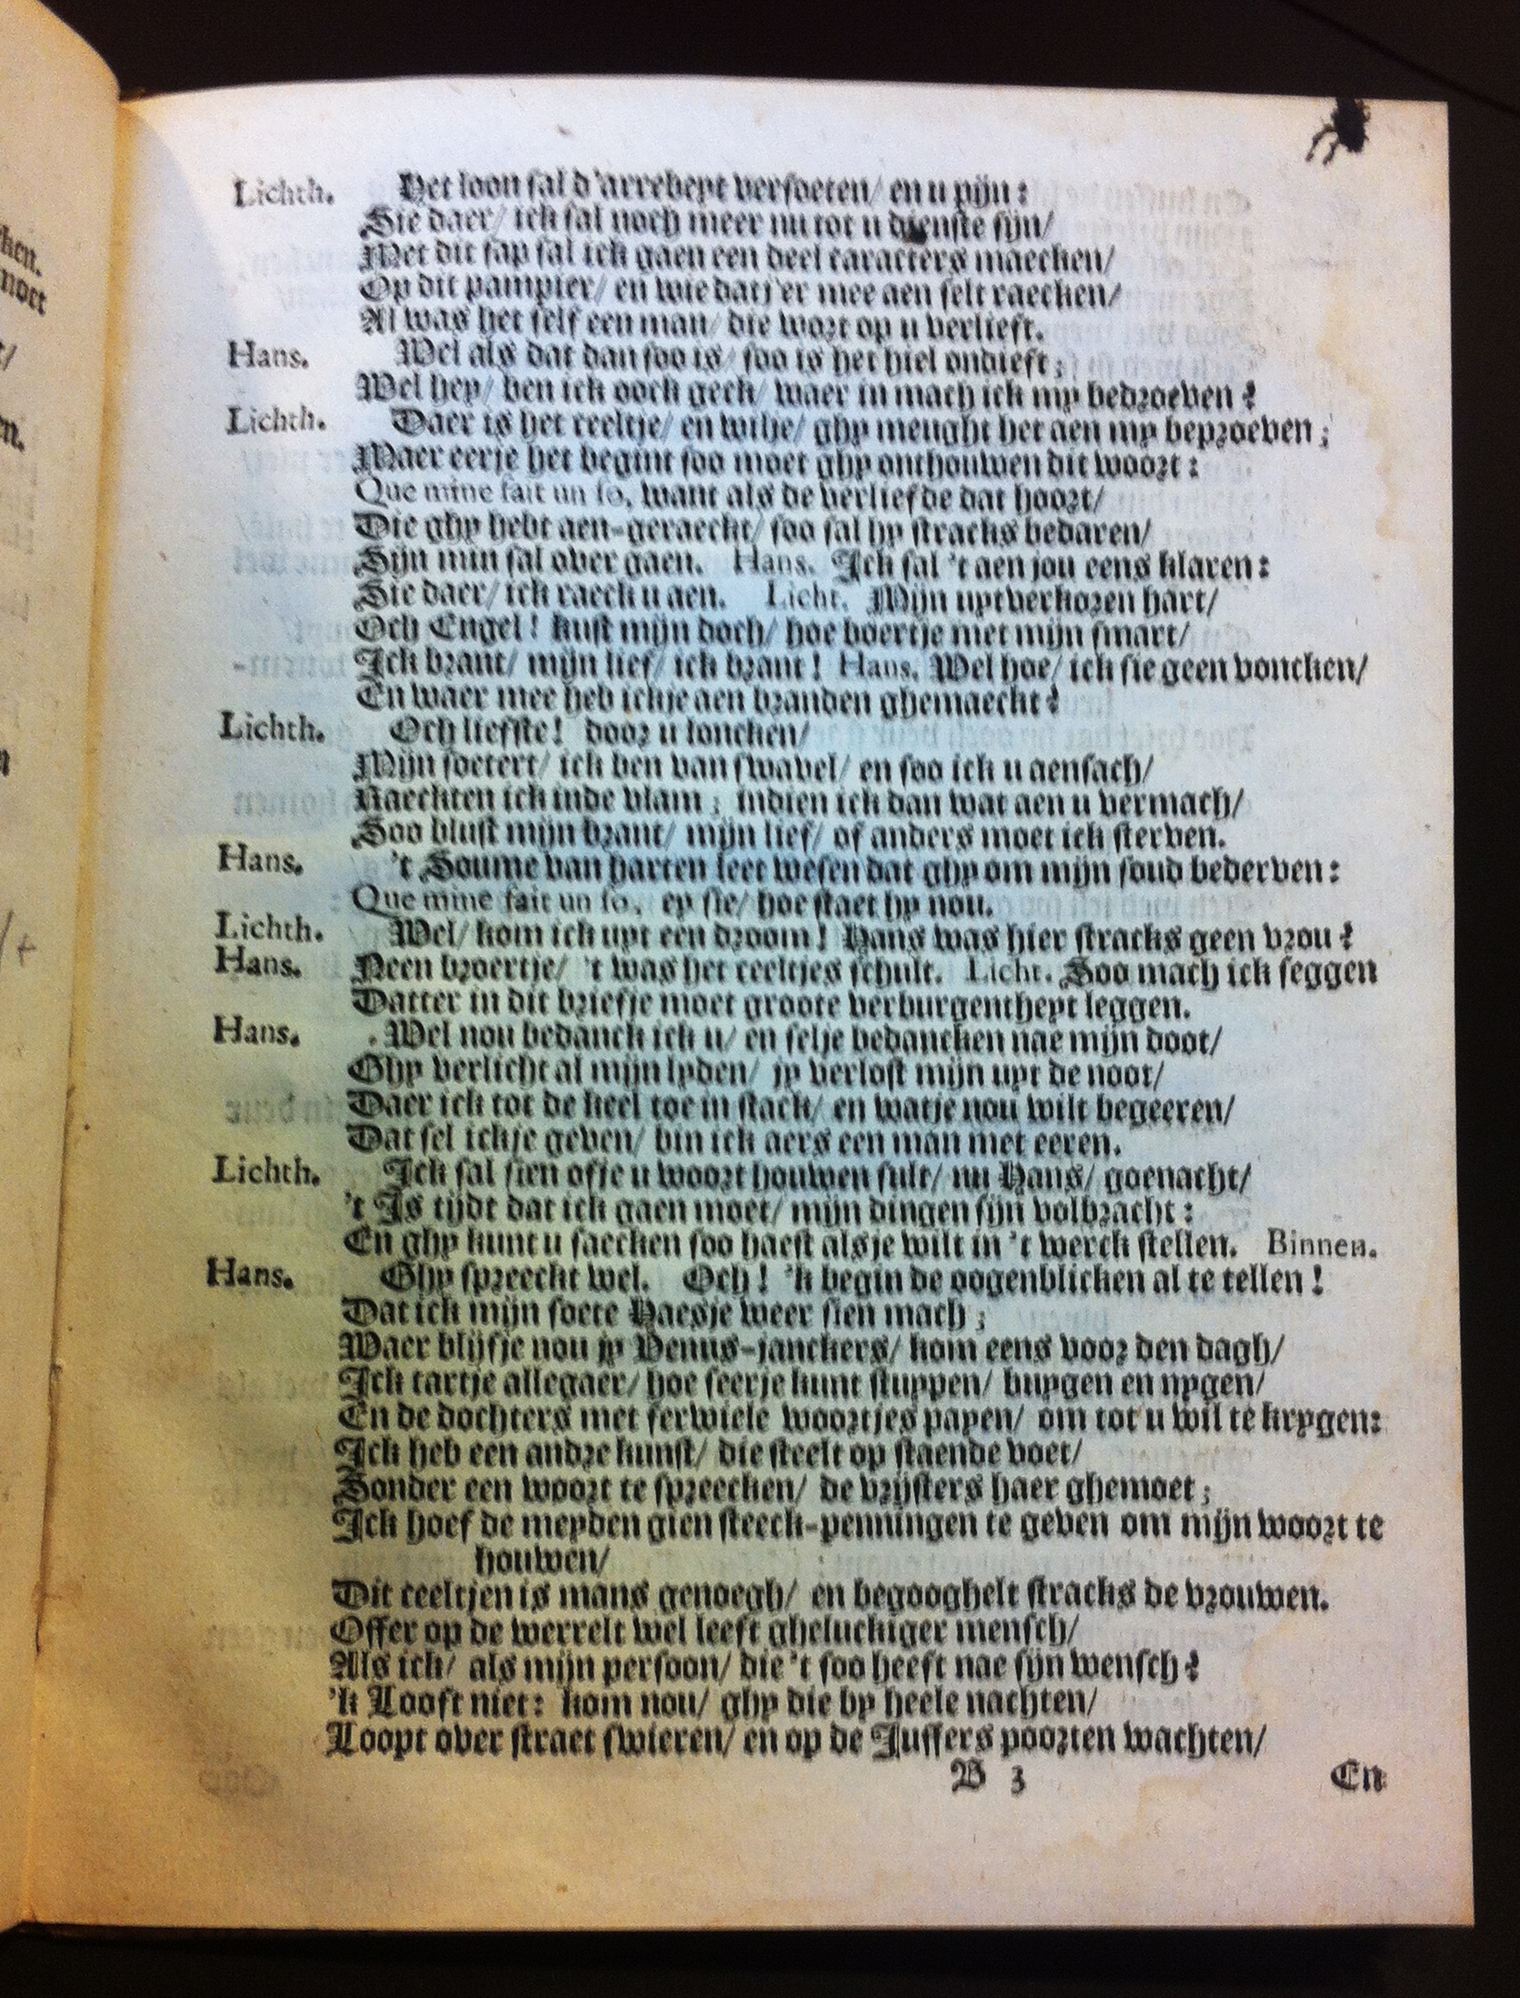 Lichth. Het loon sal d'arrebeyt versoeten/ en u pijn:
Sie daer/ ick sal noch meer nu tot u dienste sijn/
Met dit sap sal ick gaen een deel caracters maecken/
Op dit pampier/ en wie datj'er mee aen selt raecken/
Al was het self een man/ die wort op u verlieft.
Hans. Wel als dat dan soo is/ soo is het hiel ondieft;
Wel hey/ ben ick oock geck/ waer in mach ick my bedroeven?
Lichth. Daer is het ceeltje/ en wilje/ ghy meught het aen my beproeven;
Maer eerje het begint soo moet ghy onthouwen dit woort:
Que mine fait un so, want als de verliefde dat hoort/
Die ghy hebt aen-geraeckt/ soo sal hy stracks bedaren/
Sijn min sal over gaen. Hans. Ick sal 't aen jou eens klaren:
Sie daer/ ick raeck u aen. Licht. Mijn uytverkozen hart/
Och Engel! kust mijn doch/ hoe boertje met mijn smart/
Ick brant/ mijn lief/ ick brant! Hans. Wel hoe/ ick sie geen voncken/
En waer mee heb ickje aen branden ghemaeckt?
Lichth. Och liefste! door u loncken/
Mijn soetert/ ick ben van swavel/ en soo ick u aensach/
Raeckten ick inde vlam; indien ick dan wat aen u vermach/
Soo blust mijn brant/ mijn lief/ of anders moet ick sterven.
Hans. 't Soume van harten leet wesen dat ghy om mijn soud bederven:
Que mine fait un so, ey sie/ hoe staet hy nou.
Lichth. Wel/ kom ick uyt een droom! Hans was hier stracks geen vrou?
Hans. Neen broertje/ 't was het ceeltjes schult. Licht. Soo mach ick seggen
Datter in dit briefje moet groote verburgentheyt leggen.
Hans. Wel nou bedanck ick u/ en selje bedancken nae mijn doot/
Ghy verlicht al mijn lyden/ jy verlost mijn uyt de noot/
Daer ick tot de keel toe in stack/ en watje nou wilt begeeren/
Dat sel ickje geven/ bin ick aers een man met eeren.
Lichth. Ick sal sien ofje u woort houwen sult/ nu Hans/ goenacht/
't Is tijdt dat ick gaen moet/ mijn dingen sijn volbracht:
En ghy kunt u saecken soo haest alsje wilt in 't werck stellen. Binnen.
Hans. Ghy spreeckt wel. Och! 'k begin de oogenblicken al te tellen!
Dat ick mijn soete Haesje weer sien mach;
Waer blijfje nou jy Venus-janckers/ kom eens voor den dagh/
Ick tartje allegaer/ hoe seerje kunt stuypen/ buygen en nygen/
En de dochters met ferwiele woortjes payen/ om tot u wil te krygen:
Ick heb een andre kunst/ die steelt op staende voet/
Sonder een woort te spreecken/ de vrijsters haer ghemoet;
Ick hoef de meyden gien steeck-penningen te geven om mijn woort te
houwen/
Dit ceeltjen is mans genoegh/ en begooghelt stracks de vrouwen.
Offer op de werrelt wel leeft gheluckiger mensch/
Als ick/ als mijn persoon/ die 't soo heeft nae sijn wensch?
'k Looft niet: kom nou/ ghy die by heele nachten/
Loopt over straet swieren/ en op de Juffers poorten wachten/
B 3 En